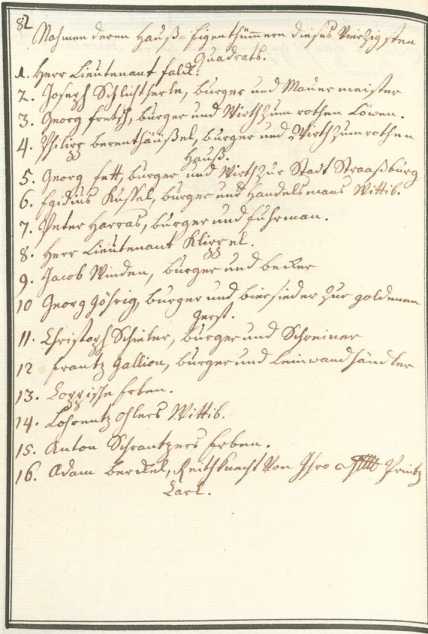 82
Nahmen deren Hauß-Eigenthümmern dieses Vierzigsten
Quadrats.
1. Herr Lieutenant
2. Joseph Schlichterle, burger und Maurer meister
3. Georg fretsch, burger und Wirth zum rothen Löwen.
4. Philipp berenthäußel, burger und Wirth zum rothen
Hauß.
5. Georg fett, burger und Wirth zur Stadt Straaßburg
6. Egidius Küssel, burger und Handelsmans Wittib.
7. Peter Harras, burger und führman.
8. Herr Lieutenant
9. Jacob Winden, burger und becker
10 Georg Göhrig, burger und biersieder zur goldenen
Gerst.
11. Christoph Schieber, burger und Schreiner
12 frantz Gallion, burger und Leinwandhändler
13. Erben.
14. Lohrentz Ohlers Wittib.
15. Anton Schrantzers Erben.
16. Adam berckel, Reithknecht von Ihro Printz
Carl.